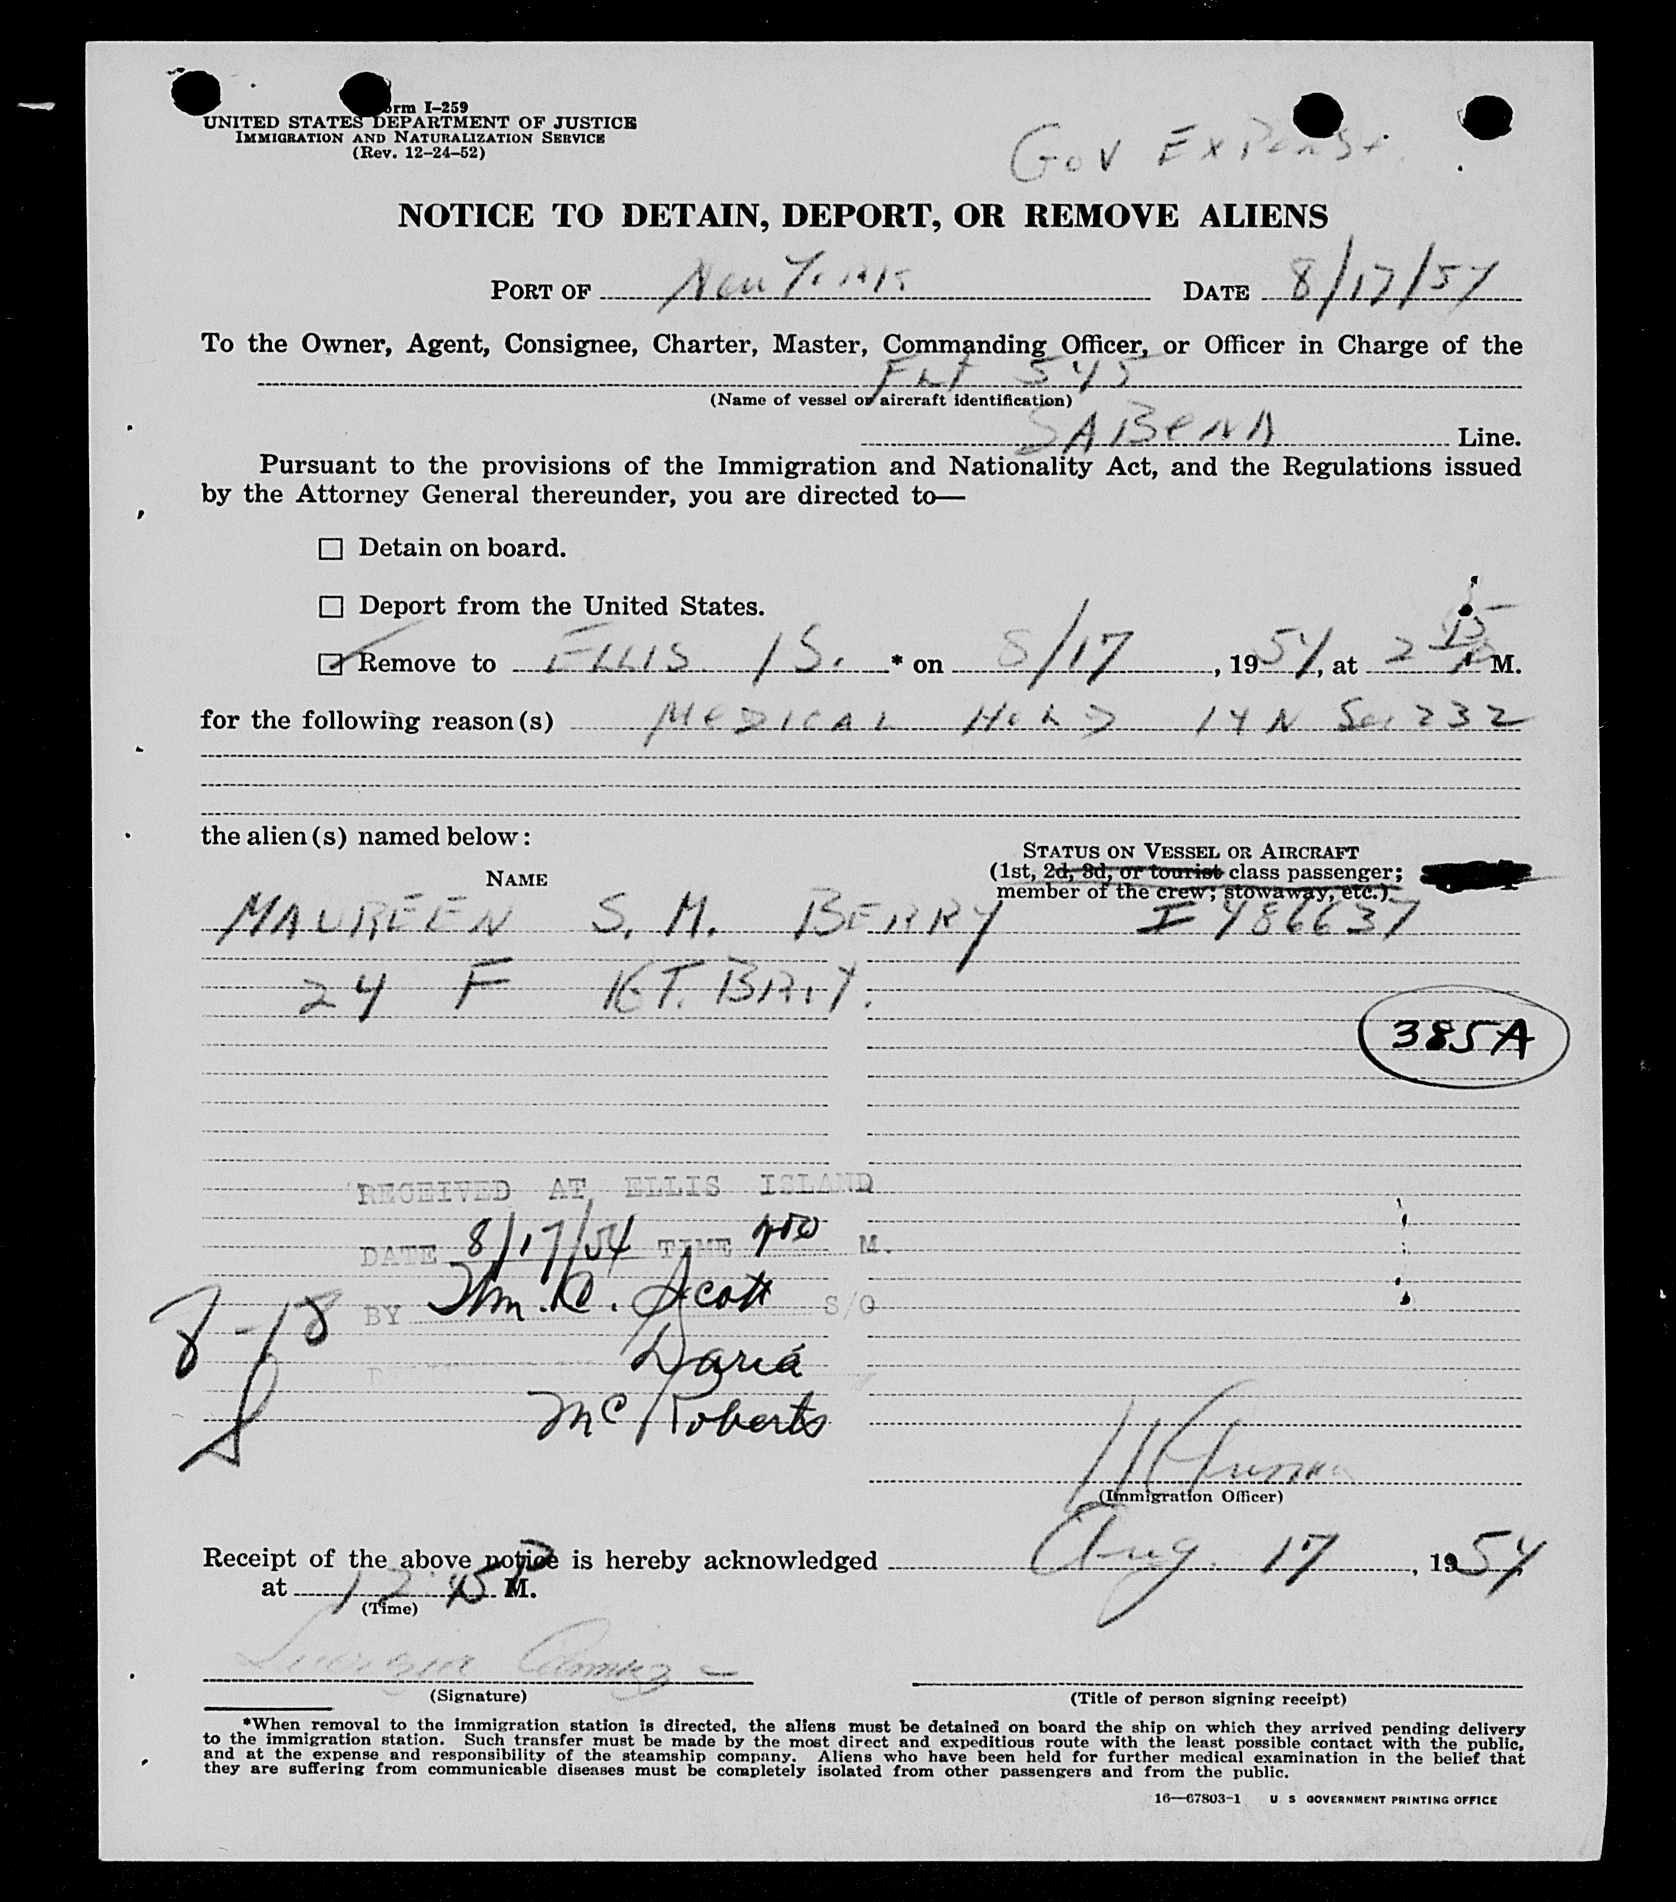 Form I-259
UNITED STATES DEPARTMENT OF JUSTICE
IMMIGRATION AND NATURALIZATION SERVICE
(Rev. 12-24-52)
GOV EXPENSE
NOTICE TO DETAIN, DEPORT, OR REMOVE ALIENS
PORT OF New York DATE 8/17/54
To the Owner, Agent, Consignee, Charter, Master, Commanding Officer, or Officer in Charge of the
FLT 545
(Name of vessel or aircraft identification)
SABENA Line.
Pursuant to the provisions of the Immigration and Nationality Act, and the Regulations issued
by the Attorney General thereunder, you are directed to—
☐ Detain on board.
☐ Deport from the United States.
☑ Remove to ELLIS IS. * on 8/17, 1954, at 2 45 P M.
for the following reason(s) MEDICAL HOLD I4N Sec 232
the alien(s) named below:
NAME
STATUS ON VESSEL OR AIRCRAFT
(1st, 2d, 3d, or tourist class passenger;
member of the crew; stowaway, etc.)
MAUREEN S. M. BERRY I 486637
24 F KT. BRIT.
385A
RECEIVED AT ELLIS ISLAND
DATE 8/17/54 TIME M.
BY Wm. C. Scott S/O
8-18
Daria
McRoberts
(Immigration Officer)
Receipt of the above notice is hereby acknowledged Aug. 17, 1954
at 12:45 P M.
(Time)
(Signature)
(Title of person signing receipt)
*When removal to the immigration station is directed, the aliens must be detained on board the ship on which they arrived pending delivery
to the immigration station. Such transfer must be made by the most direct and expeditious route with the least possible contact with the public,
and at the expense and responsibility of the steamship company. Aliens who have been held for further medical examination in the belief that
they are suffering from communicable diseases must be completely isolated from other passengers and from the public.
16—67803-1 U S GOVERNMENT PRINTING OFFICE